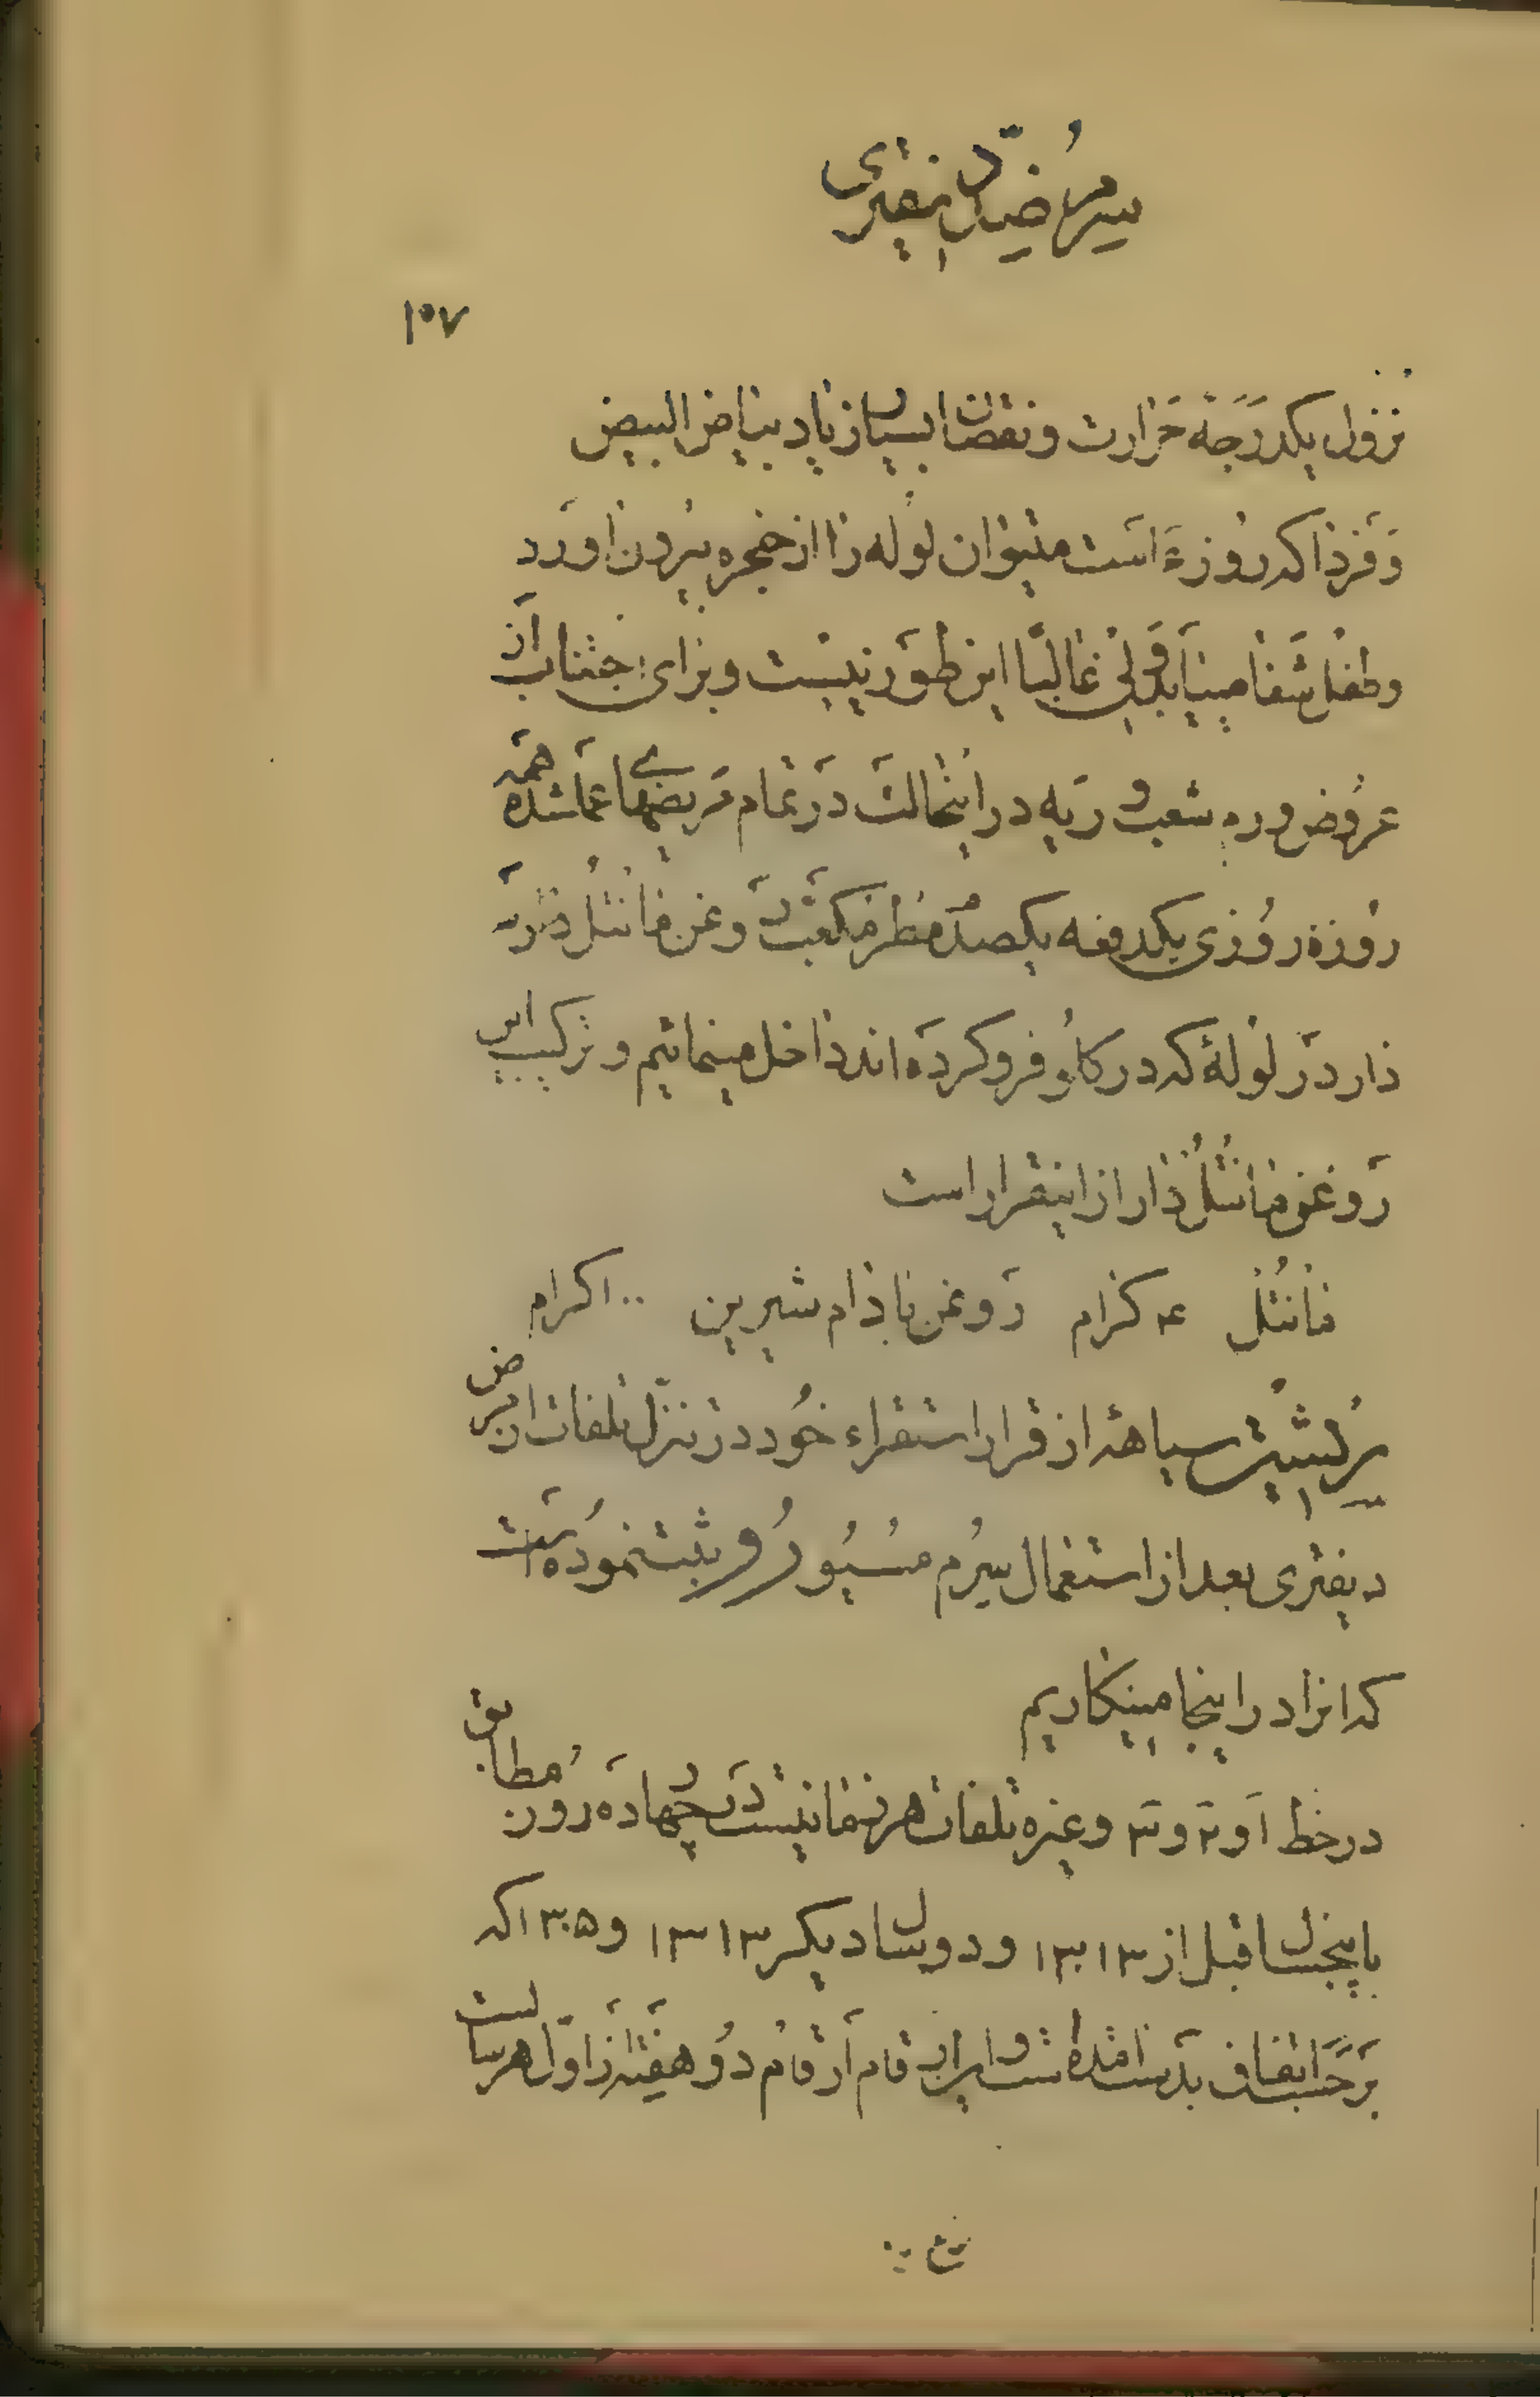 سیرم ضد دیفتری
۱۰۷
نزول یکدرجه حرارت و نقصان بسیار زیاد بیاض البیض
و فردا که روز ۴ است میتوان لوله را از حنجره بیرون آورد
و طفل شفا مییابد ولی غالبا این طور نیست و برای اجتناب از
عروض ورم شعب و ریه در اینحالت در تمام مریضهای عمل شده همه
روزه روزی یکدفعه یکصدم مطر مکعب روغن مانتل
دار در لوله که در گلو فرو کرده‌اند داخل مینمائیم و ترکیب این
روغن مانتل دار از اینقرار است
مانتل ۴ کرام روغن بادام شیرین ۱۰۰ کرام
سیاهه از قرار استقراء خود در تنزل تلفات از مرض
دیفتری بعد از استعمال سیرم مسیو رو ثبت نموده است
که انرا در اینجا مینکاریم
در خط ۱ و ۲ و ۳ و غیره تلفات هر نمانیست در چهارده روز مطابق
با پنجسال قبل از ۱۳۱۳ و دو سال دیکر ۱۳۱۳ و ۱۳۰۵ که
بر حسب اتفاق بدست امده است و این ارقام ارقام دو هفته از اول هر سال است